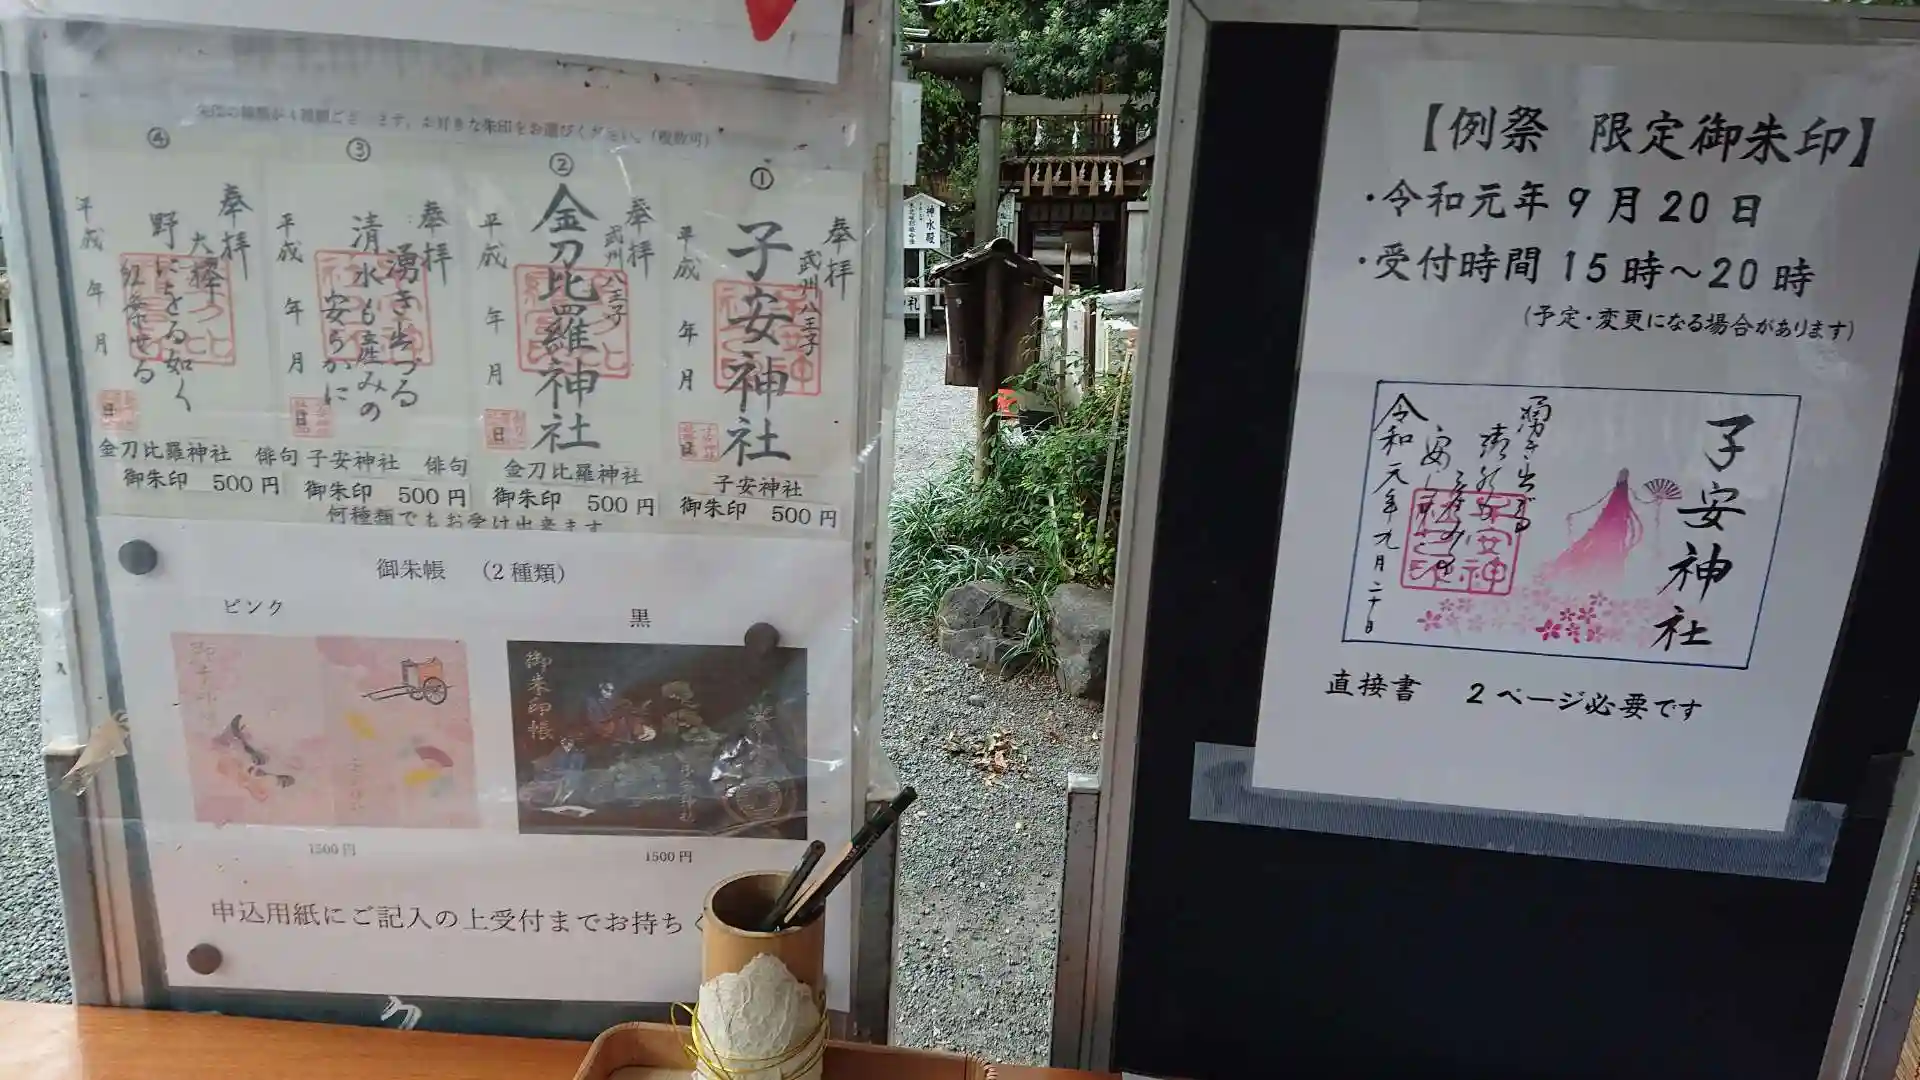 朱印の種類が4種類ございます。お好きな朱印をお選びください。(複数可)
①
奉拝
武州八王子
子安神社
平成 年 月 日
子安神社
御朱印 500円
②
奉拝
武州八王子
金刀比羅神社
平成 年 月 日
金刀比羅神社
御朱印 500円
③
奉拝
湧き出づる
清水も産みの
安らかに
平成 年 月 日
子安神社 俳句
御朱印 500円
④
奉拝
大欅
野にをる如く
紅葉せる
平成 年 月 日
金刀比羅神社 俳句
御朱印 500円
何種類でもお受け出来ます
御朱帳 (2種類)
ピンク
黒
御朱印帳
御朱印帳
子安神社
1500円
1500円
申込用紙にご記入の上受付までお持ちく
神水殿
【例祭 限定御朱印】
・令和元年9月20日
・受付時間 15時～20時
(予定・変更になる場合があります)
子安神社
湧き出づる
清水も
産みの
安らかに
令和元年九月二十日
直接書 2ページ必要です